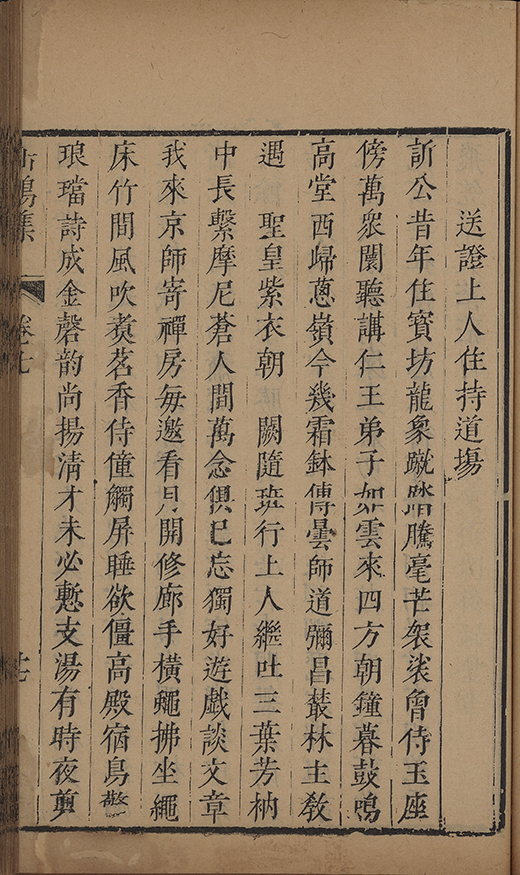 送證上人住持道場
訢公昔年住寶坊龍象蹴踏騰毫芒袈裟曾侍玉座
傍萬衆闤聽講仁王弟子如雲來四方朝鐘暮鼓鳴
高堂西歸蔥嶺今幾霜鉢傳曇師道彌昌叢林主敎
遇　聖皇紫衣朝　闕隨班行上人繼吐三葉芳衲
中長繫摩尼蒼人間萬念俱已忘獨好遊戱談文章
我來京師寄禪房每邀看月開修廊手橫蠅拂坐繩
床竹間風吹煑茗香侍僮觸屏睡欲僵高殿宿鳥驚
琅璫詩成金磬韵尚揚淸才未必慙支湯有時夜剪
鳴集
卷七
十七